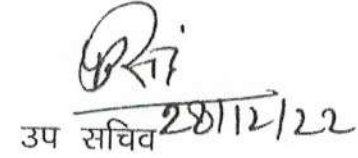 उप सचिव 28/12/22